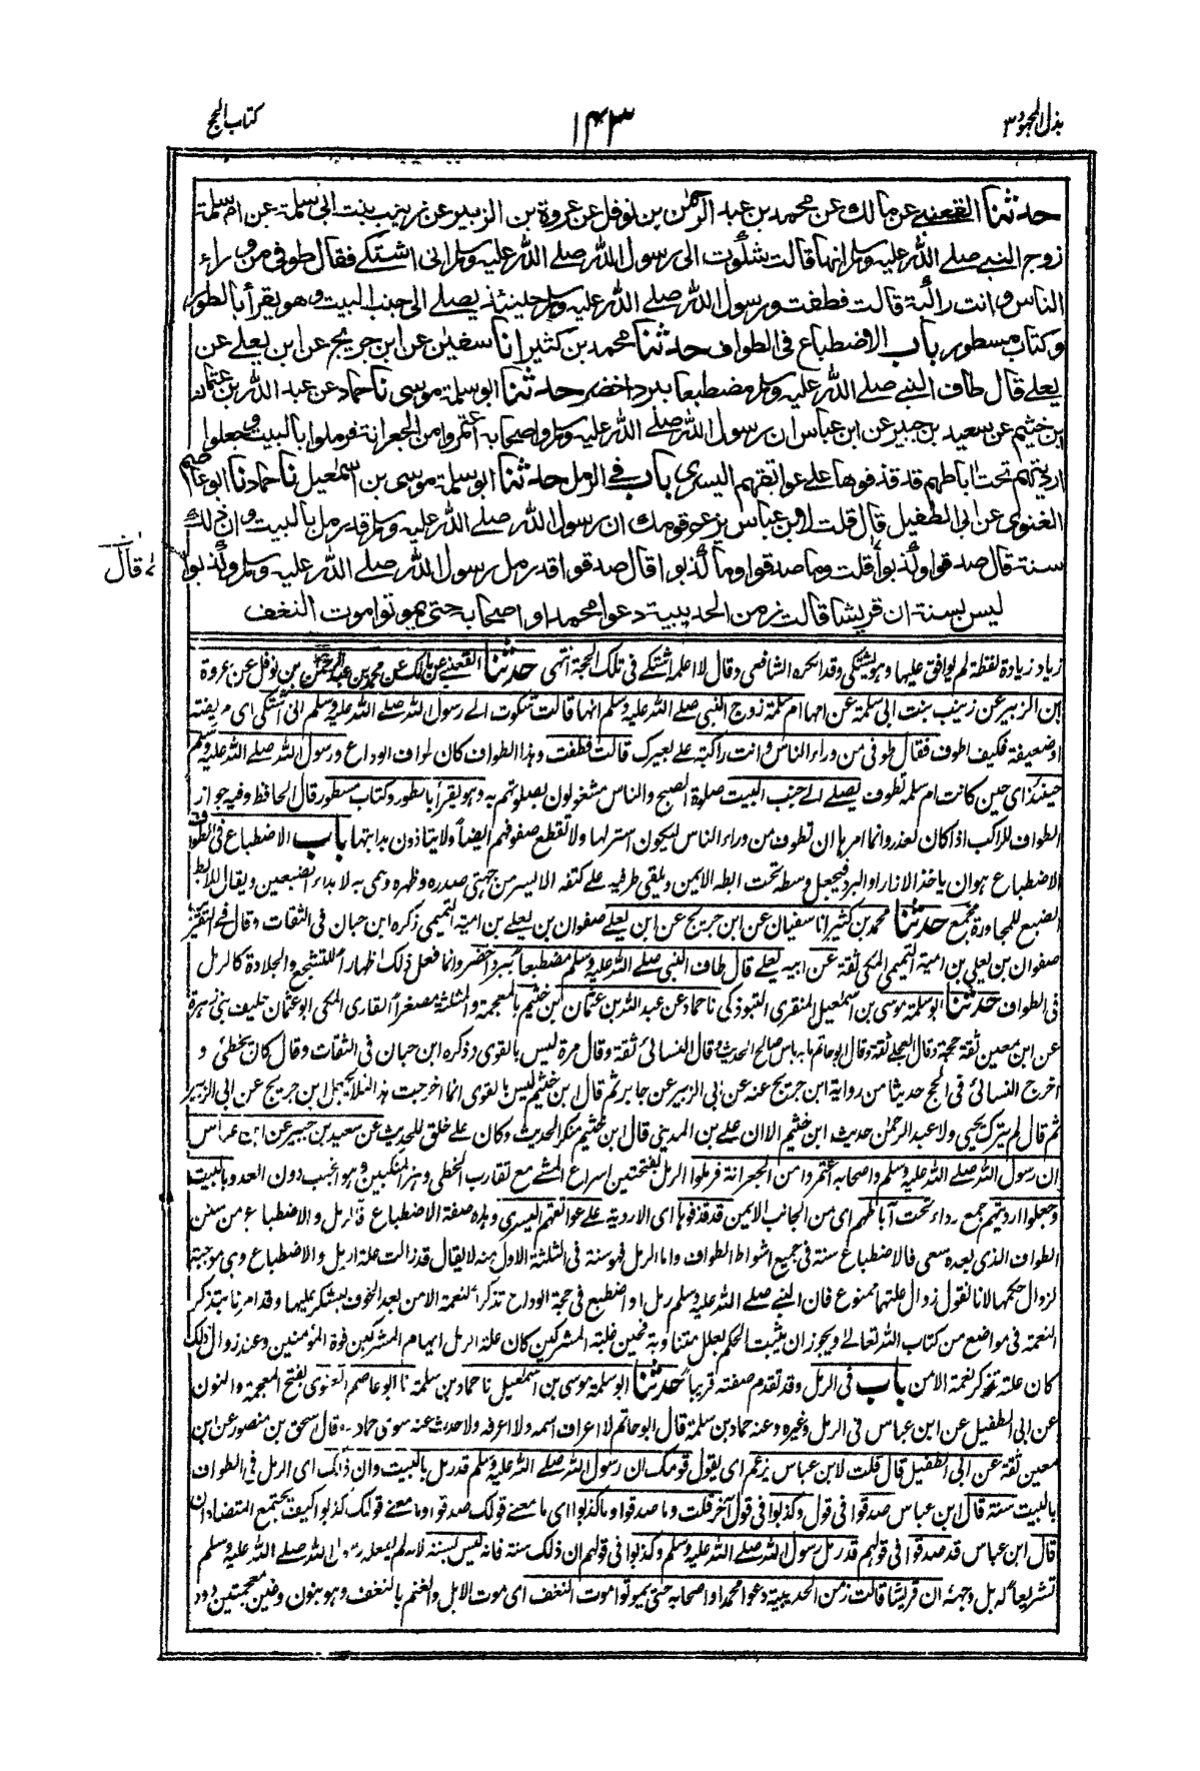 بذل المجهود ٣
١٤٣
كتاب الحج
حدثنا القعنبي عن مالك عن محمد بن عبد الرحمن بن نوفل عن عروة بن الزبير عن زينب بنت ابي سلمة عن ام سلمة
زوج النبي صلى الله عليه وسلم انها قالت شكوت الى رسول الله صلى الله عليه وسلم اني اشتكي فقال طوفي من وراء
الناس وانت راكبة قالت فطفت ورسول الله صلى الله عليه وسلم حينئذ يصلي الى جنب البيت وهو يقرأ بالطور
وكتاب مسطور باب الاضطباع في الطواف حدثنا محمد بن كثير انا سفيان عن ابن جريج عن ابن يعلى عن
يعلى قال طاف النبي صلى الله عليه وسلم مضطبعا ببرد اخضر حدثنا ابو سلمة موسى نا حماد عن عبد الله بن عثمان
ابن خثيم عن سعيد بن جبير عن ابن عباس ان رسول الله صلى الله عليه وسلم واصحابه اعتمروا من الجعرانة فرملوا بالبيت وجعلوا
ارديتهم تحت اباطهم قد قذفوها على عواتقهم اليسرى باب في الرمل حدثنا ابو سلمة موسى بن اسمعيل نا حماد نا ابو عاصم
الغنوي عن ابي الطفيل قال قلت لابن عباس يزعم قومك ان رسول الله صلى الله عليه وسلم قد رمل بالبيت وان ذلك
سنة قال صدقوا وكذبوا قلت وما صدقوا وما كذبوا قال صدقوا قد رمل رسول الله صلى الله عليه وسلم وكذبوا
قال
ليس بسنة ان قريشا قالت زمن الحديبية دعوا محمدا واصحابه حتى يموتوا موت النغف
زياد زيادة لفظة لم يوافق عليها وهو يشتكي وقد انكره الشافعي وقال لا اعلمه اشتكى في تلك الحجة انتهى حدثنا القعنبي عن مالك عن محمد بن عبد الرحمن بن نوفل عن عروة
ابن الزبير عن زينب بنت ابي سلمة عن امها ام سلمة زوج النبي صلى الله عليه وسلم انها قالت شكوت الى رسول الله صلى الله عليه وسلم اني اشتكي اي مريضة
او ضعيفة فكيف اطوف فقال طوفي من وراء الناس وانت راكبة على بعيرك قالت فطفت وهذا الطواف كان طواف الوداع ورسول الله صلى الله عليه وسلم
حينئذ اي حين كانت ام سلمة تطوف يصلي الى جنب البيت صلوة الصبح والناس مشغولون بصلوتهم به وهو يقرأ بالطور وكتاب مسطور قال الحافظ وفيه جواز
الطواف للراكب اذا كان لعذر وانما امرها ان تطوف من وراء الناس ليكون استر لها ولا تقطع صفوفهم ايضا ولا يتاذون بدابتها باب الاضطباع في الطواف
الاضطباع هو ان ياخذ الازار او البرد فيجعل وسطه تحت ابطه الايمن ويلقي طرفيه على كتفه الايسر من جهتي صدره وظهره وسمي به لابداء الضبعين ويقال للابط
الضبع للمجاورة مجمع حدثنا محمد بن كثير انا سفيان عن ابن جريج عن ابن يعلى صفوان بن يعلى بن امية التميمي ذكره ابن حبان في الثقات وقال في التقريب
صفوان بن يعلى بن امية التميمي المكي ثقة عن ابيه يعلى قال طاف النبي صلى الله عليه وسلم مضطبعا ببرد اخضر وانما فعل ذلك اظهارا للتشجع والجلادة كالرمل
في الطواف حدثنا ابو سلمة موسى بن اسمعيل المنقري التبوذكي نا حماد عن عبد الله بن عثمان ابن خثيم بالمعجمة والمثلثة مصغرا القاري المكي ابو عثمان حليف بني زهرة
عن ابن معين ثقة حجة وقال العجلي ثقة وقال ابو حاتم ما به باس صالح الحديث وقال النسائي ثقة وقال مرة ليس بالقوي وذكره ابن حبان في الثقات وقال كان يخطئ و
اخرج النسائي في الحج حديثا من رواية ابن جريج عنه عن ابي الزبير عن جابر ثم قال ابن خثيم ليس بالقوي انما اخرجت هذا لئلا يجعل ابن جريج عن ابي الزبير
ثم قال لم يترك يحيى ولا عبد الرحمن حديث ابن خثيم الا ان علي بن المديني قال ابن خثيم منكر الحديث وكان علي خلق للحديث عن سعيد بن جبير عن ابن عباس
ان رسول الله صلى الله عليه وسلم واصحابه اعتمروا من الجعرانة فرملوا الرمل بفتحتين اسراع المشي مع تقارب الخطى وهز المنكبين وهو الخبب دون العدو بالبيت
وجعلوا ارديتهم جمع رداء تحت اباطهم اي من الجانب الايمن قد قذفوها اي الاردية على عواتقهم اليسرى وهذه صفة الاضطباع والرمل والاضطباع من سنن
الطواف الذي بعده سعي فالاضطباع سنة في جميع اشواط الطواف واما الرمل فهو سنة في الثلثة الاول منه لا يقال قد زالت علة الرمل والاضطباع وهي موجبة
لزوال حكمها لانا نقول زوال علتها ممنوع فان النبي صلى الله عليه وسلم رمل واضطبع في حجة الوداع تذكرا لنعمة الامن بعد الخوف ليشكر عليها وقد امرنا بتذكر
النعمة في مواضع من كتاب الله تعالى ويجوز ان يثبت الحكم بعلل متناوبة فحين غلبة المشركين كان علة الرمل ايهام المشركين قوة المؤمنين وعند زوال ذلك
كان علته تذكر نعمة الامن باب في الرمل وقد تقدم صفته قريبا حدثنا ابو سلمة موسى بن اسمعيل نا حماد بن سلمة نا ابو عاصم الغنوي بفتح المعجمة والنون
عن ابي الطفيل عن ابن عباس في الرمل وغيره وعنه حماد بن سلمة قال ابو حاتم لا اعرف اسمه ولا اعرفه ولا حدث عنه سوى حماد وقال اسحق بن منصور عن ابن
معين ثقة عن ابي الطفيل قال قلت لابن عباس يزعم اي يقول قومك ان رسول الله صلى الله عليه وسلم قد رمل بالبيت وان ذلك اي الرمل في الطواف
بالبيت سنة قال ابن عباس صدقوا في قول وكذبوا في قول آخر قلت وما صدقوا وما كذبوا اي ما معنى قولك صدقوا وما معنى قولك كذبوا كيف يجتمع المتضادان
قال ابن عباس قد صدقوا في قولهم قد رمل رسول الله صلى الله عليه وسلم وكذبوا في قولهم ان ذلك سنة فانه ليس بسنة لانه لم يفعله رسول الله صلى الله عليه وسلم
تشريعا له بل وجهه ان قريشا قالت زمن الحديبية دعوا محمدا واصحابه حتى يموتوا موت النغف اي موت الابل والغنم بالنغف وهو بنون وغين معجمتين دود